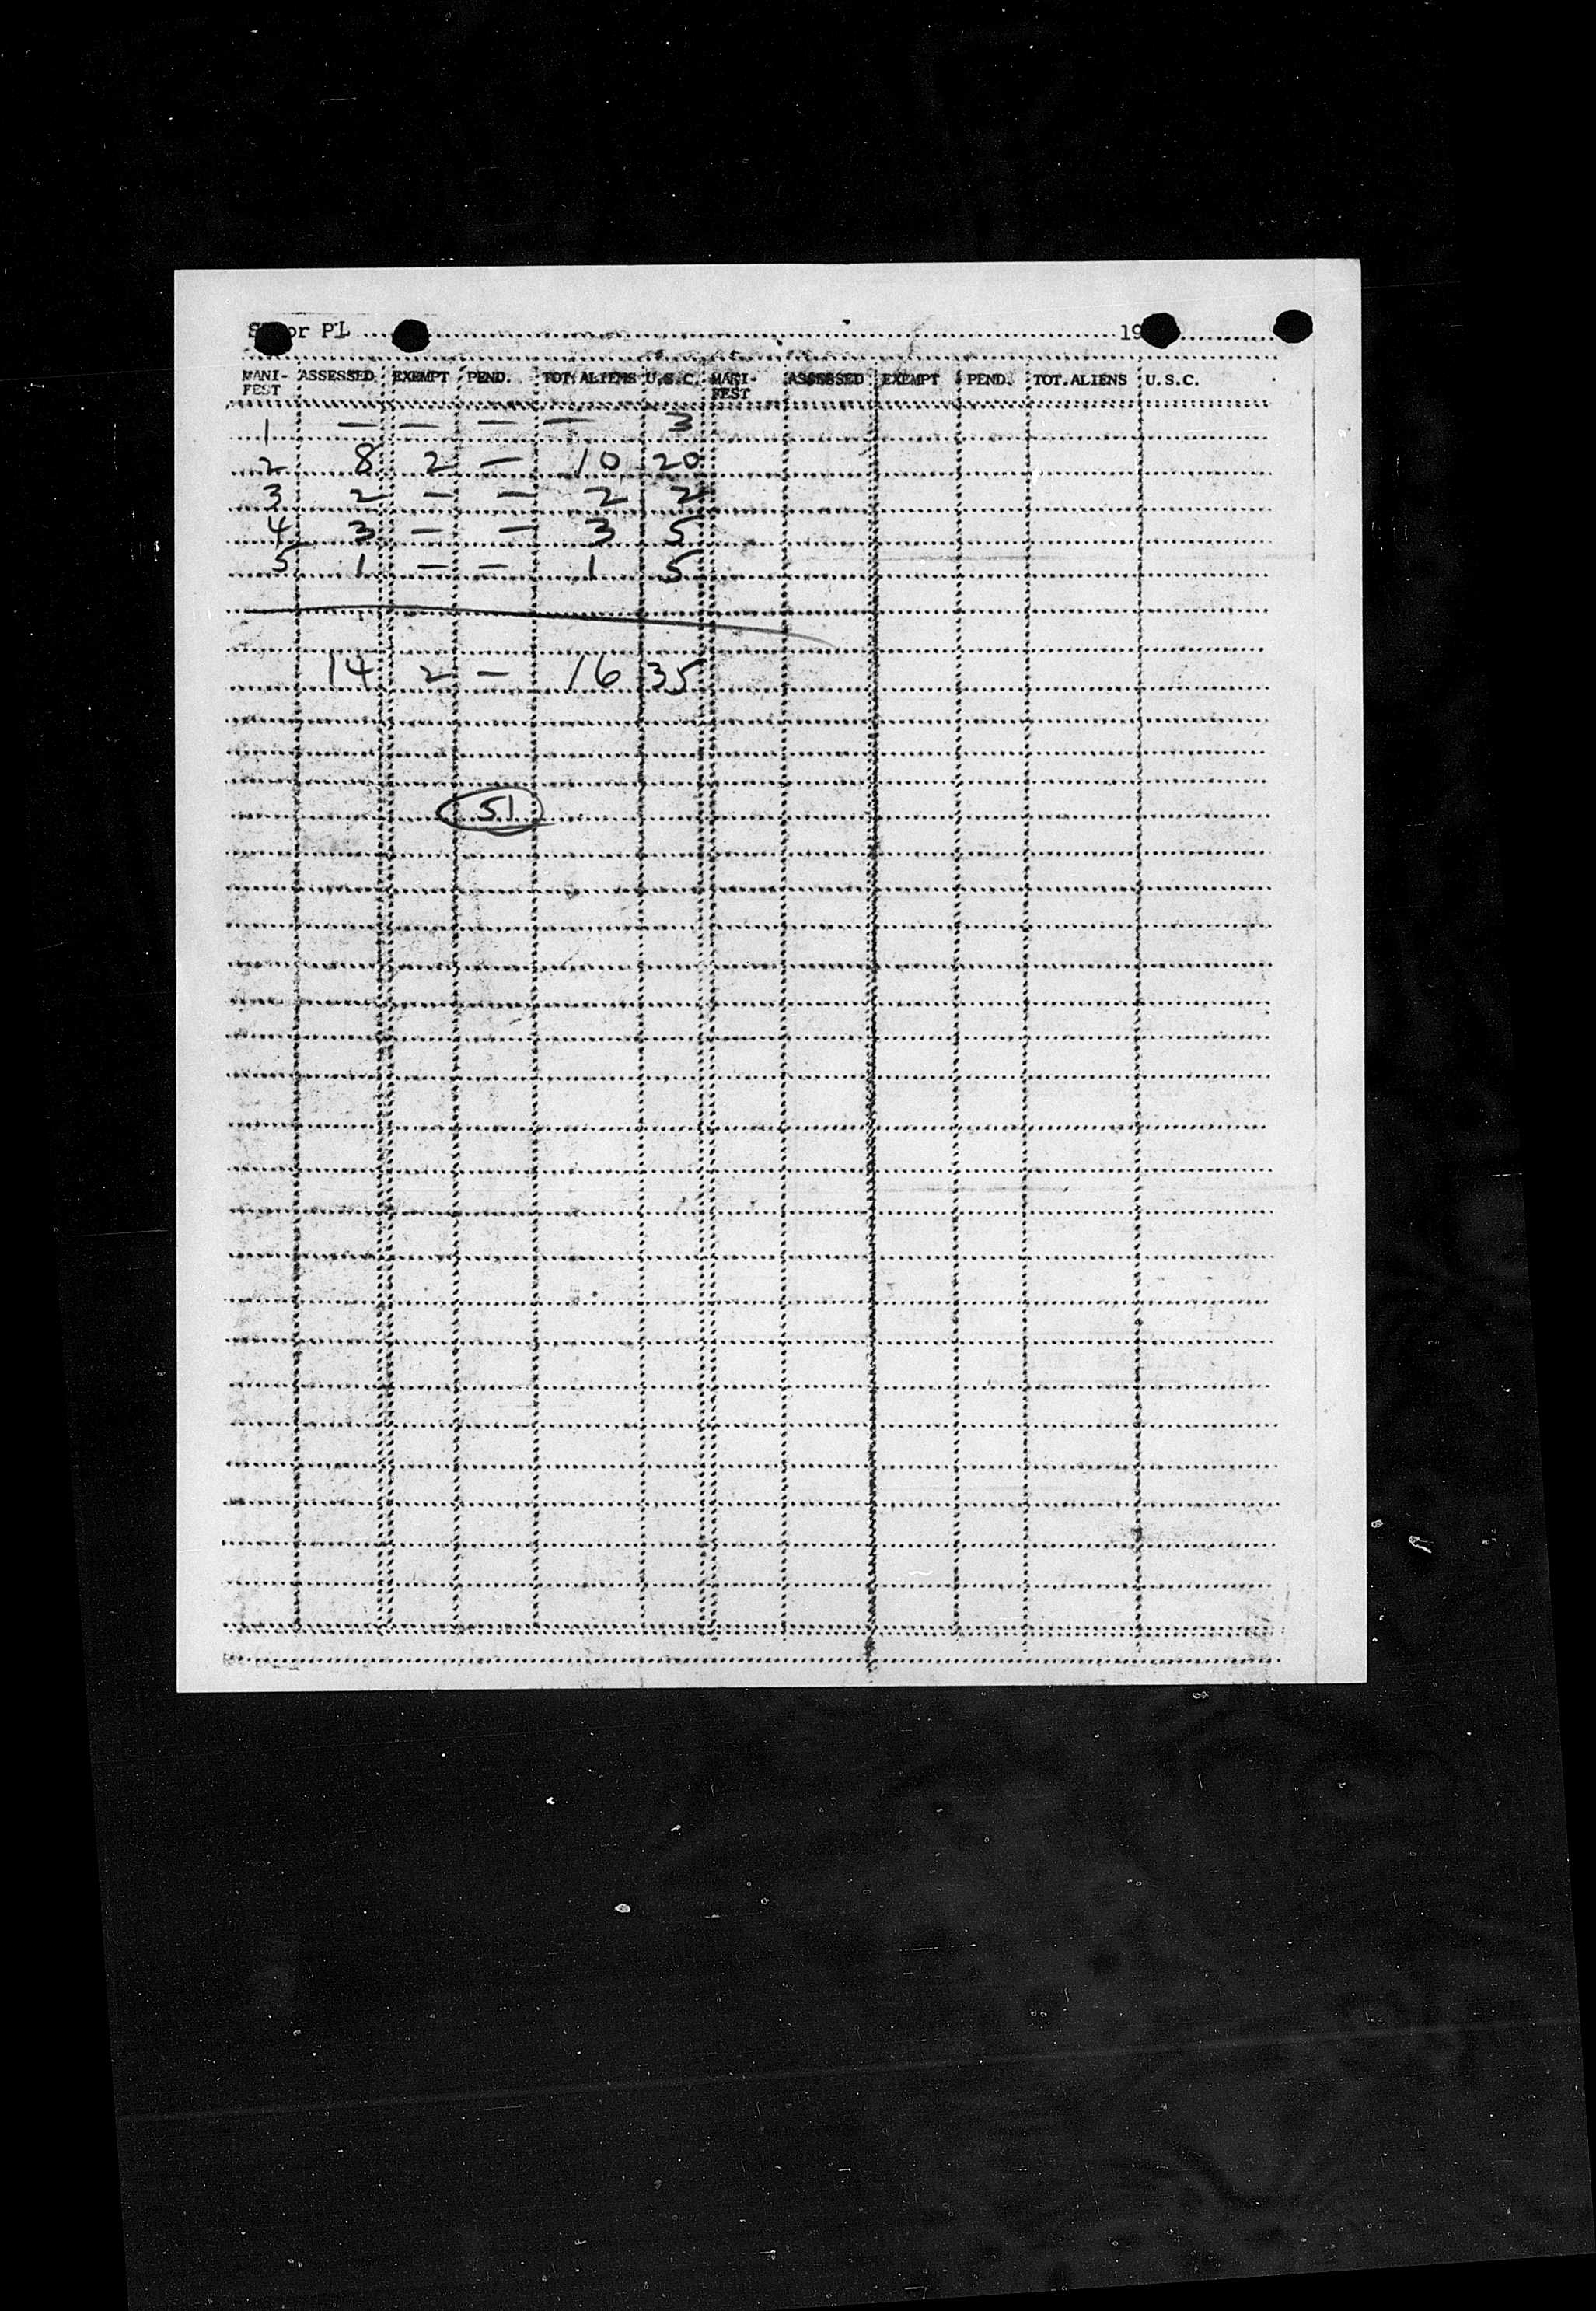 or PL 19
MANI-FEST ASSESSED EXEMPT PEND. TOT. ALIENS U.S.C. MANI-FEST ASSESSED EXEMPT PEND. TOT. ALIENS U.S.C.
1 — — — — 3
2 8 2 — 10 20
3 2 — — 2 2
4 3 — — 3 5
5 1 — — 1 5
14 2 — 16 35
51